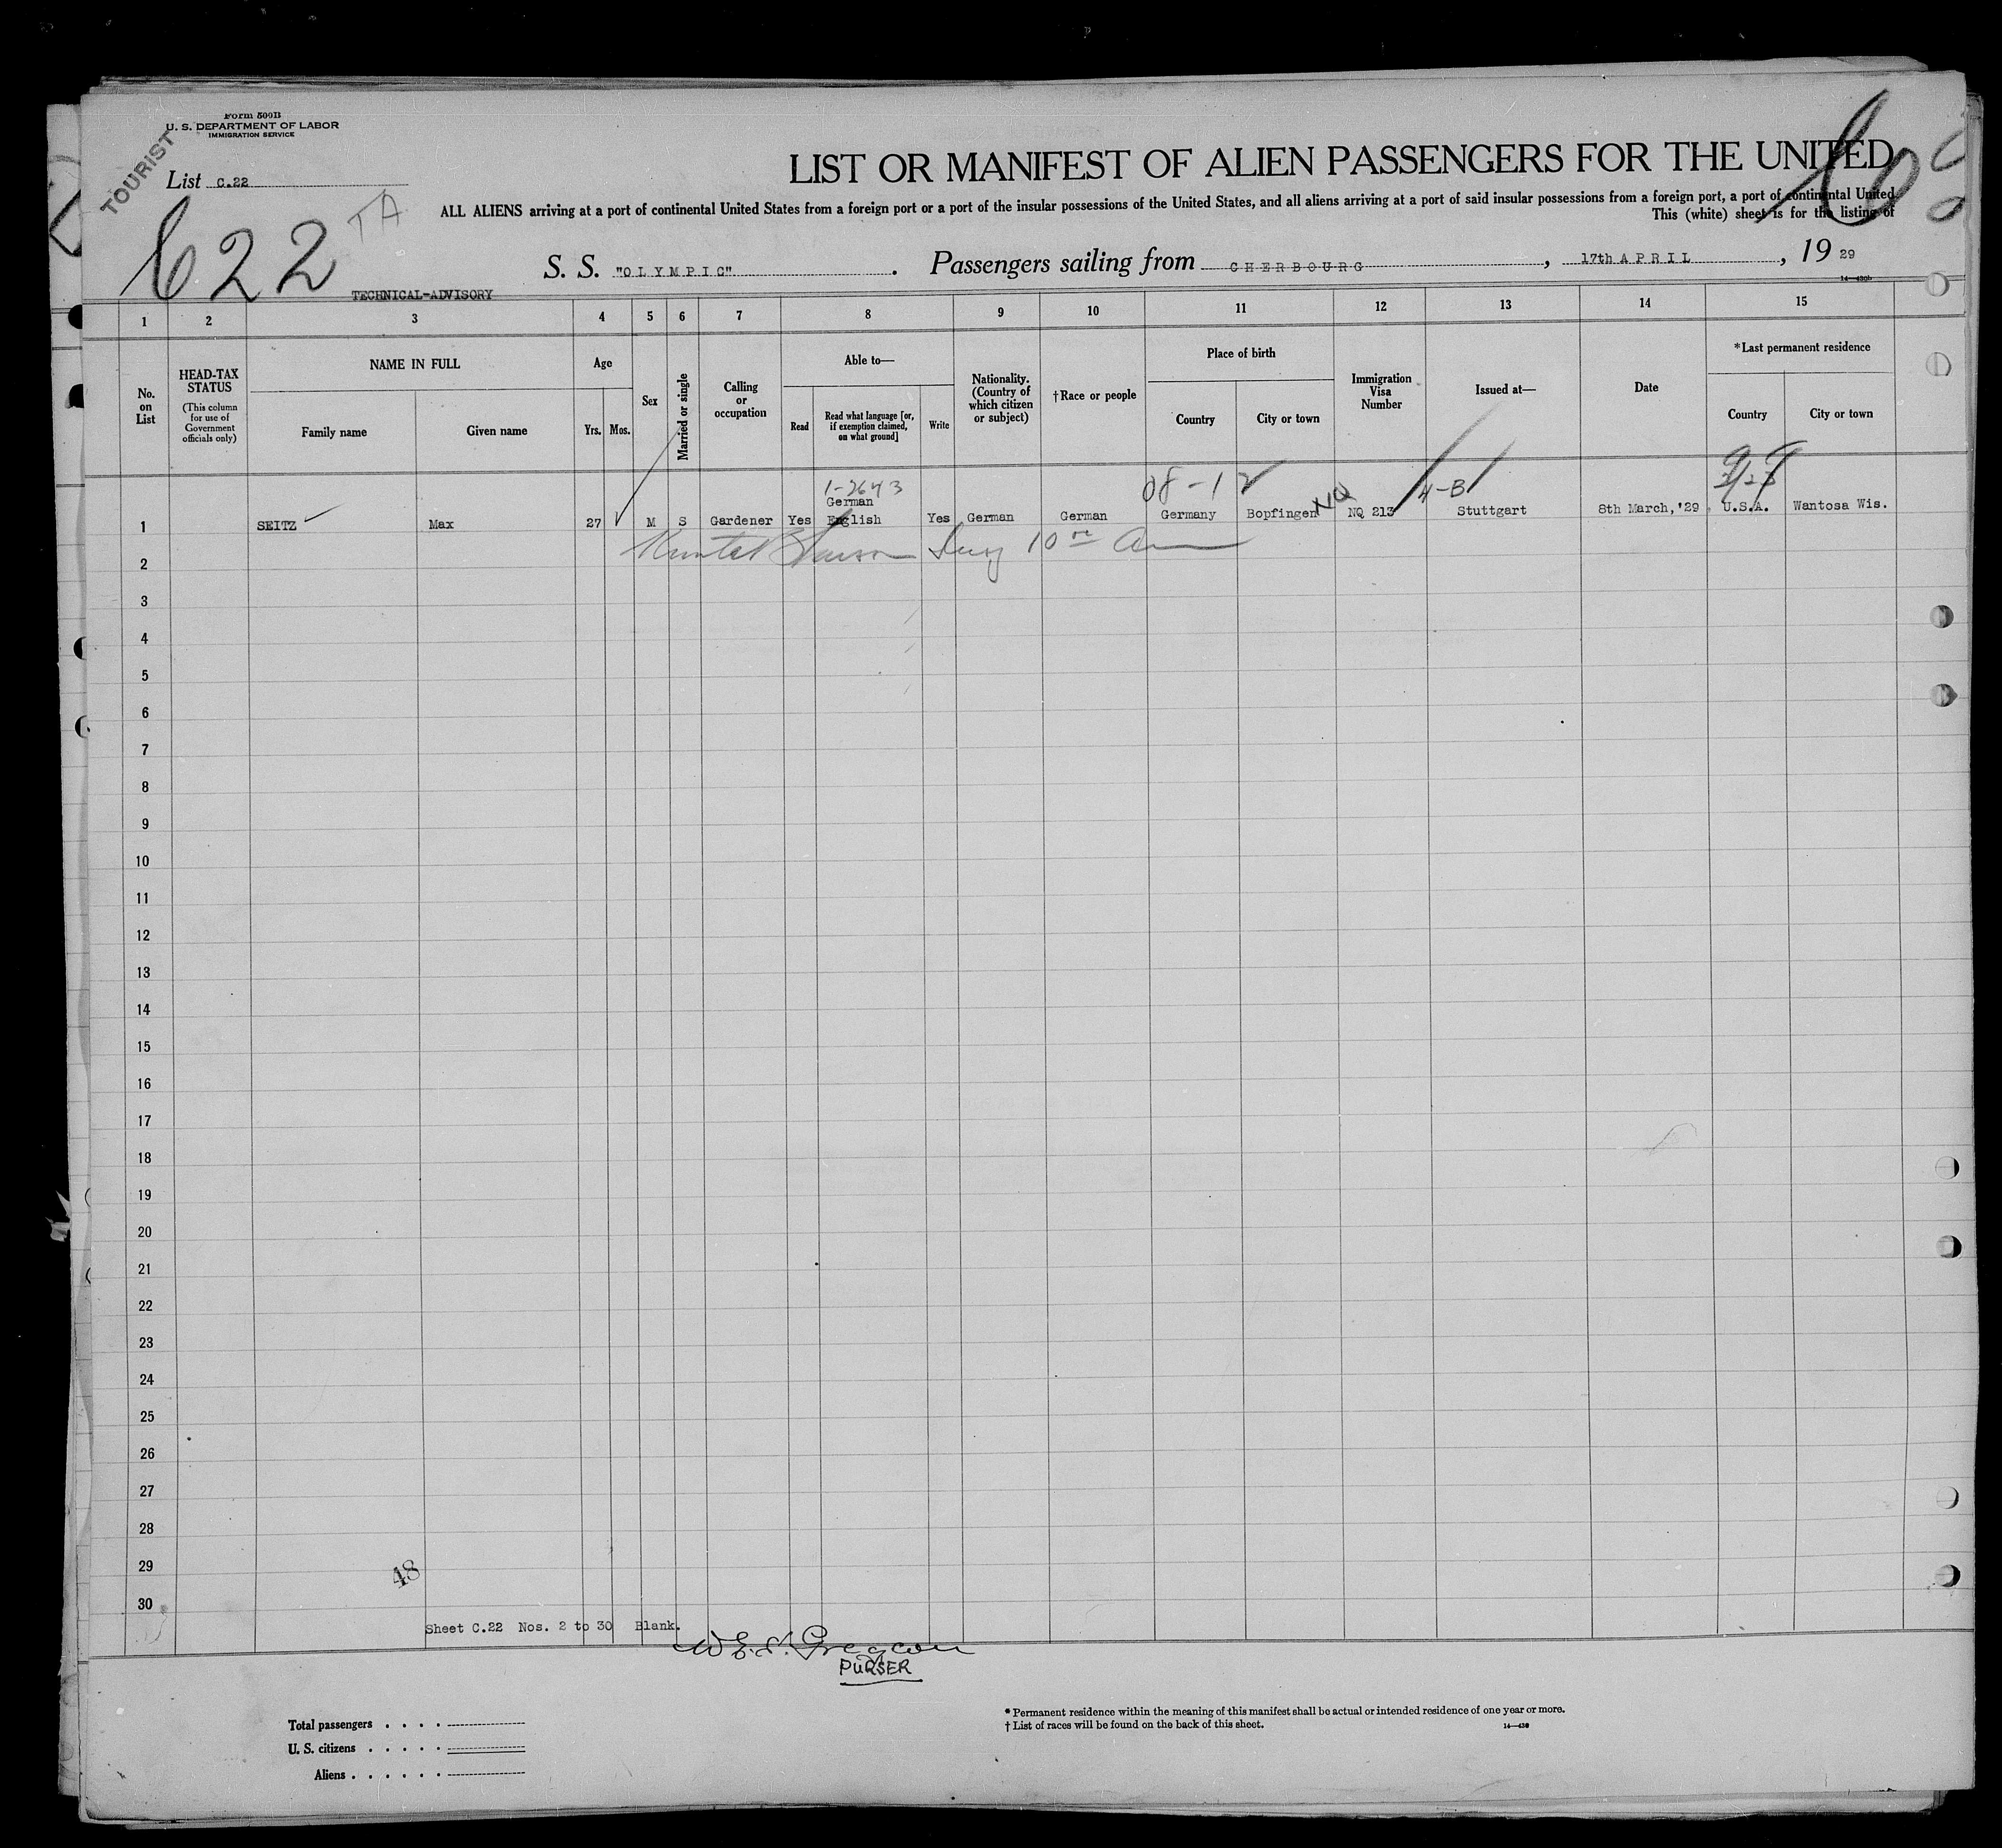 Form 500B
U. S. DEPARTMENT OF LABOR
IMMIGRATION SERVICE
TOURIST
List C.22
622
TA
LIST OR MANIFEST OF ALIEN PASSENGERS FOR THE UNITED
ALL ALIENS arriving at a port of continental United States from a foreign port or a port of the insular possessions of the United States, and all aliens arriving at a port of said insular possessions from a foreign port, a port of continental United
This (white) sheet is for the listing of
S. S. "OLYMPIC". Passengers sailing from CHERBOURG, 17th APRIL, 19 29
TECHNICAL-ADVISORY
1 2 3 4 5 6 7 8 9 10 11 12 13 14 15
No. on List
HEAD-TAX STATUS
(This column for use of Government officials only)
NAME IN FULL
Family name
Given name
Age
Yrs.
Mos.
Sex
Married or single
Calling or occupation
Able to—
Read
Read what language [or, if exemption claimed, on what ground]
Write
Nationality. (Country of which citizen or subject)
†Race or people
Place of birth
Country
City or town
Immigration Visa Number
Issued at—
Date
*Last permanent residence
Country
City or town
1-2643
08-12
4-B
German
1 SEITZ Max 27 M S Gardener Yes English Yes German German Germany Bopfingen NQ 213 Stuttgart 8th March,'29 U.S.A. Wantosa Wis.
2
3
4
5
6
7
8
9
10
11
12
13
14
15
16
17
18
19
20
21
22
23
24
25
26
27
28
29
30
48
Sheet C.22 Nos. 2 to 30 Blank.
PURSER
Total passengers
U. S. citizens
Aliens
* Permanent residence within the meaning of this manifest shall be actual or intended residence of one year or more.
† List of races will be found on the back of this sheet.